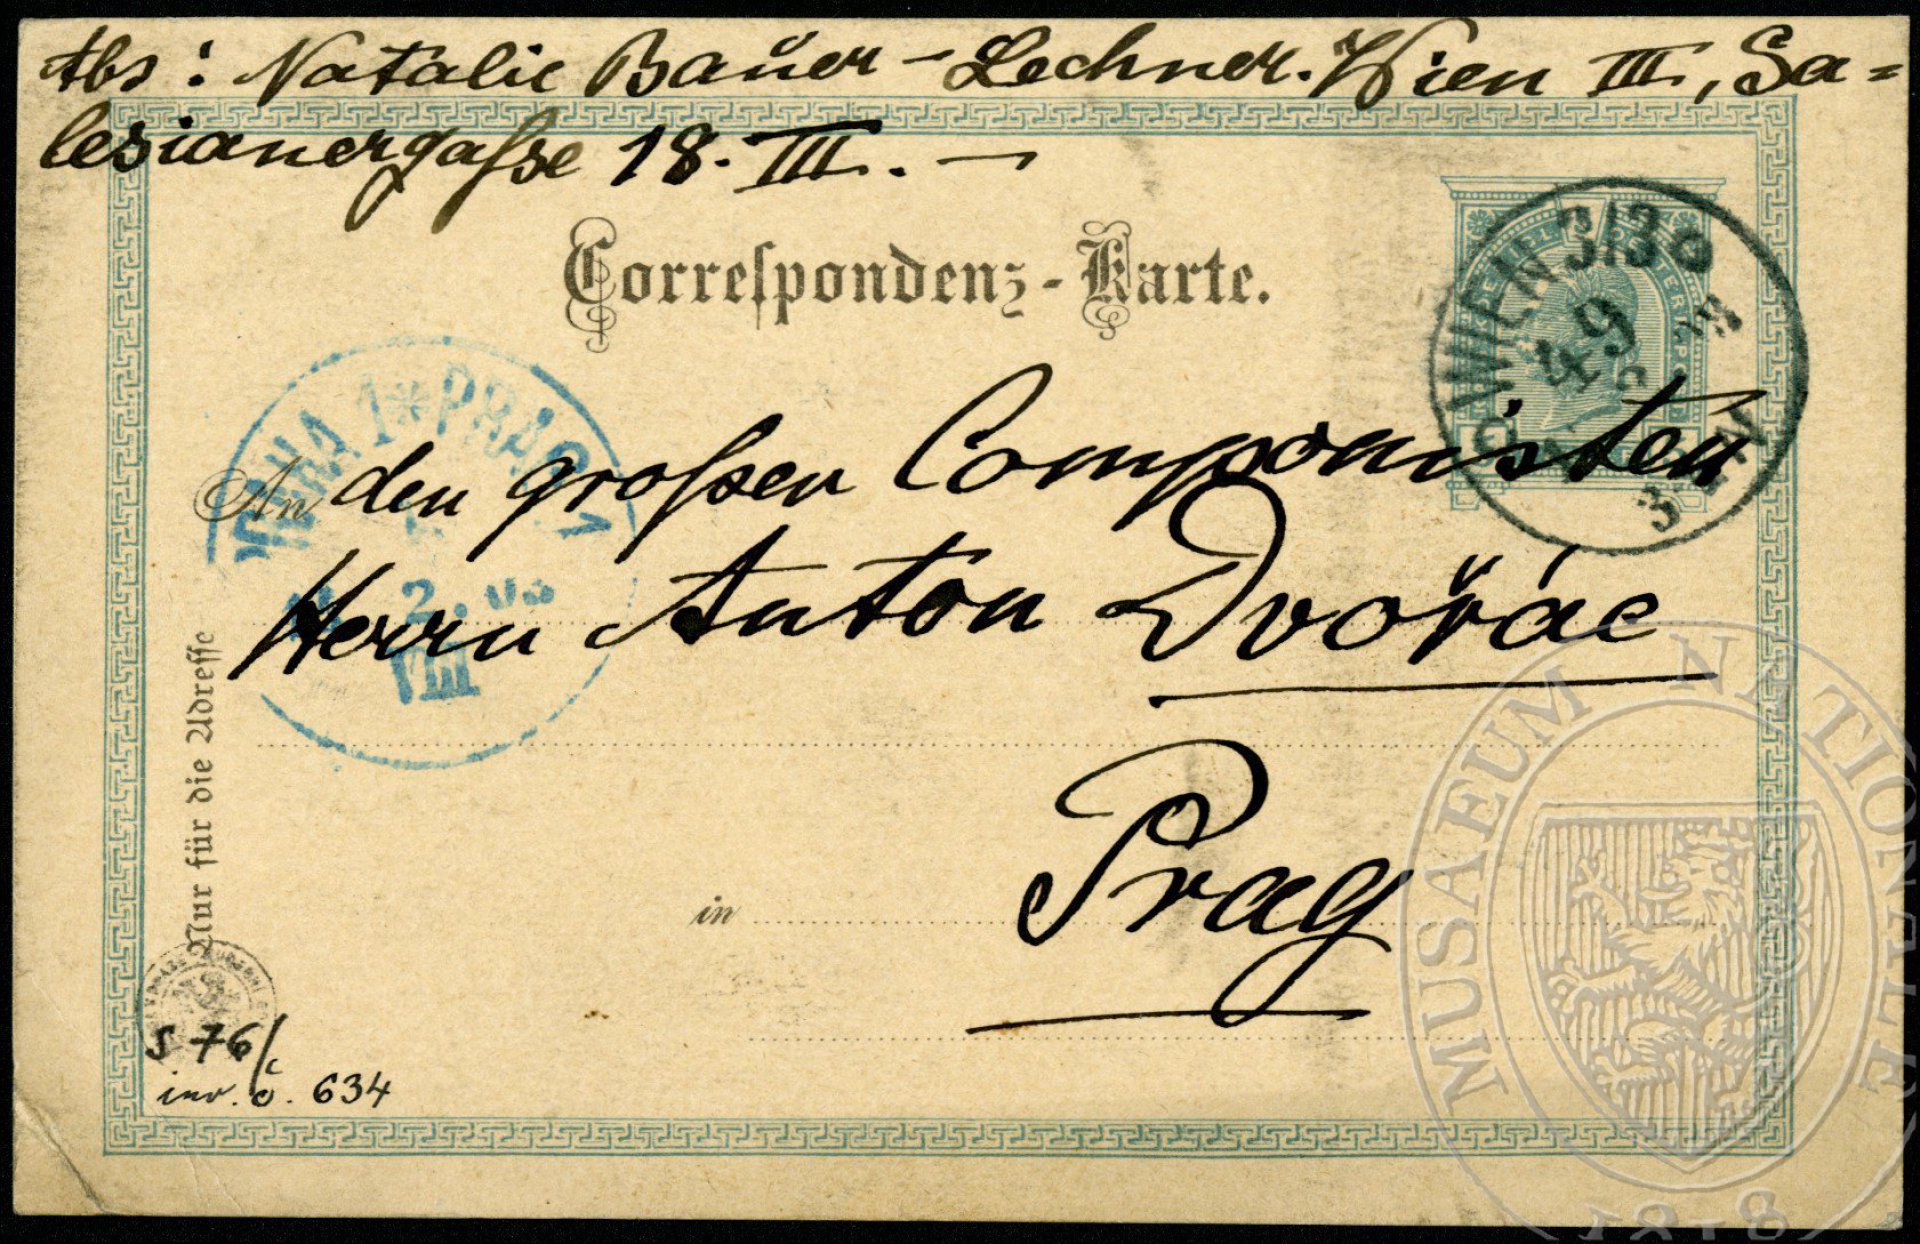 Abs: Natalie Bauer-Lechner. Wien III, Sa=
lesianergasse 18. III. —
Correspondenz-Karte.
WIEN 3/3
49
PRAHA 1 * PRAG
VIII
An den großen Componisten
Herrn Anton Dvořác
in Prag
Nur für die Adresse
S 76/
inv. č. 634
MUSAEUM NATIONALE
1818